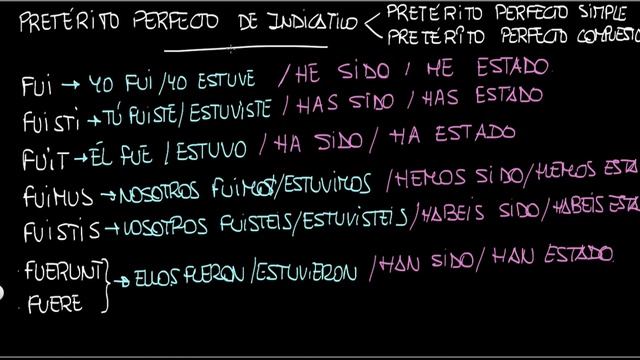 PRETÉRITO PERFECTO DE INDICATIVO < PRETÉRITO PERFECTO SIMPLE
PRETÉRITO PERFECTO COMPUESTO
FUI → YO FUI/YO ESTUVE / HE SIDO / HE ESTADO
FUISTI → TÚ FUISTE/ESTUVISTE / HAS SIDO / HAS ESTADO
FUIT → ÉL FUE / ESTUVO / HA SIDO / HA ESTADO
FUIMUS → NOSOTROS FUIMOS/ESTUVIMOS / HEMOS SIDO/HEMOS ESTA
FUISTIS → VOSOTROS FUISTEIS/ESTUVISTEIS /HABÉIS SIDO/HABÉIS ESTA
FUERUNT
FUERE
} → ELLOS FUERON /ESTUVIERON /HAN SIDO/ HAN ESTADO